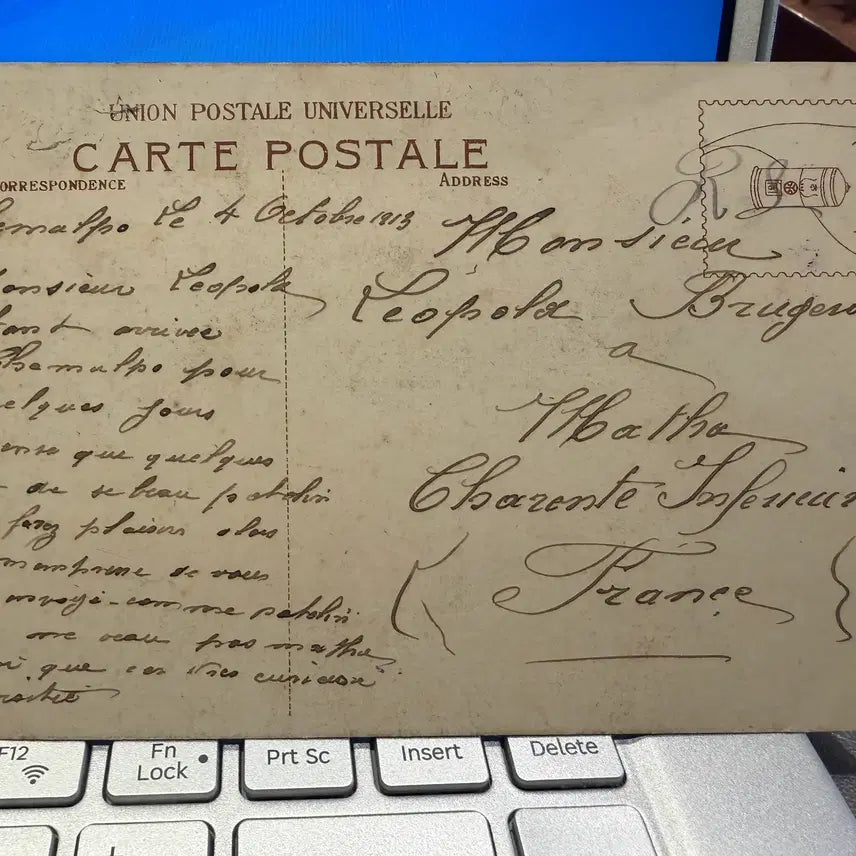 UNION POSTALE UNIVERSELLE
CARTE POSTALE
ORRESPONDENCE
ADDRESS
emulpo le 4 Octobre 1913
onsieur Leopold
tant arrivee
Chemulpo pour
elques jours
ense que quelques
de se beau patelin
farez plaisir alors
de vous
envoyé comme patelin
me veau pas matha
que ces tres curieux
Monsieur
Leopold Bruger
a
Matha
Charente Inferieur
France
F12
Fn
Lock
Prt Sc
Insert
Delete